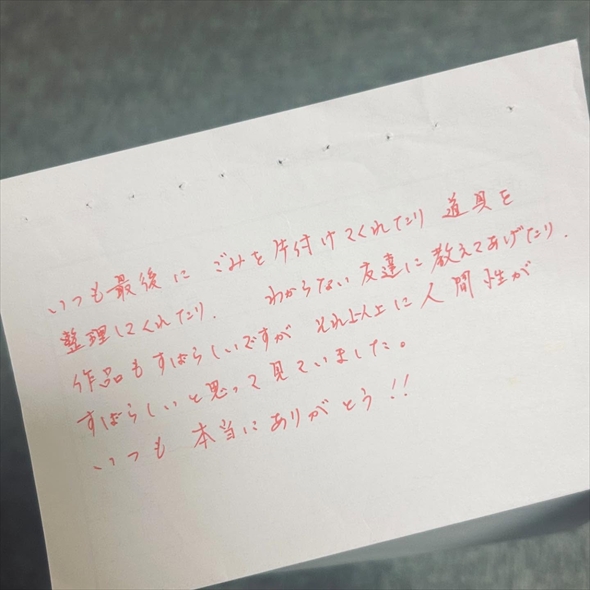 いつも最後に ごみを片付けてくれたり 道具を
整理してくれたり. わからない友達に教えてあげたり.
作品もすばらしいですが それ以上に人間性が
すばらしいと思って見ていました。
いつも 本当にありがとう!!